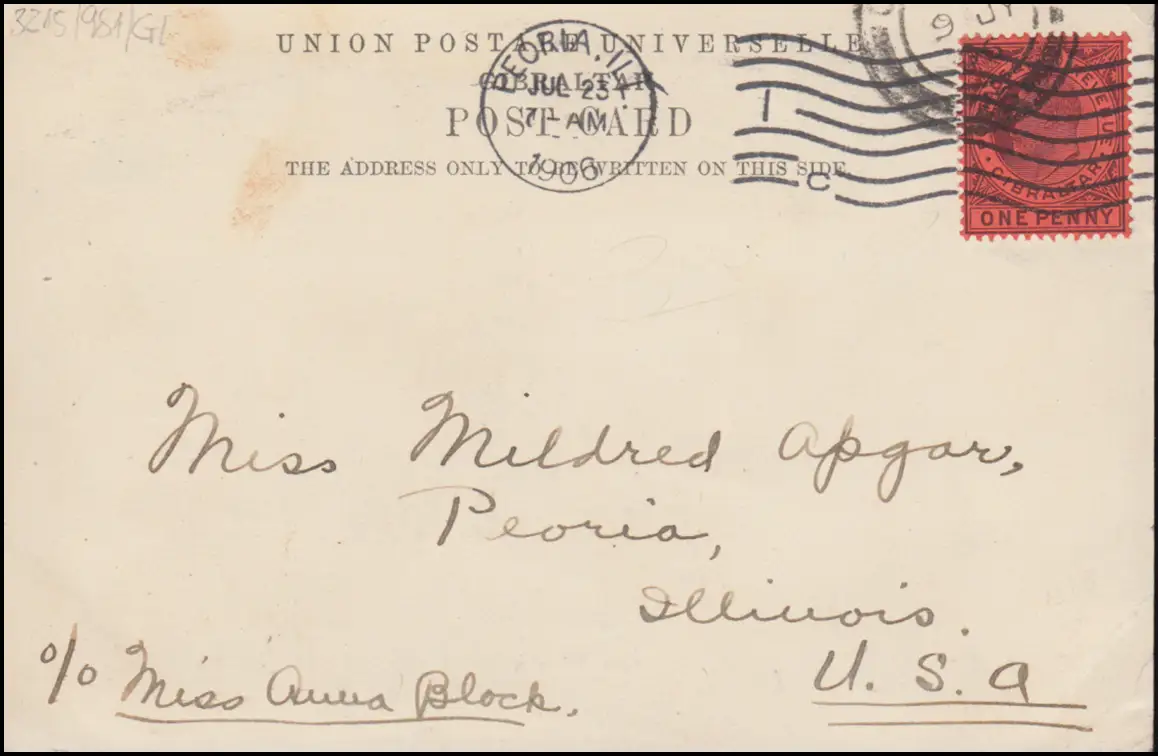 3215/981/GI
UNION POSTALE UNIVERSELLE
GIBRALTAR
POST CARD
THE ADDRESS ONLY TO BE WRITTEN ON THIS SIDE.
PEORIA, ILL.
JUL 23
7-AM
1906
1
C
9 JY
GIBRALTAR
ONE PENNY
Miss Mildred Apgar,
Peoria,
Illinois.
U. S. A
c/o Miss Anna Block.